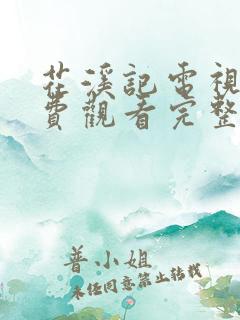 花溪記電視
費觀看完整
普小姐
未任同意禁止轉載